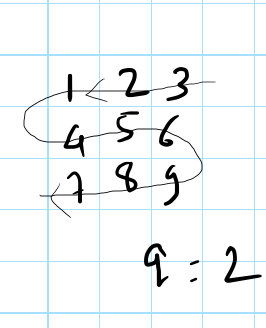 1 2 3
4 5 6
7 8 9
9 = 2